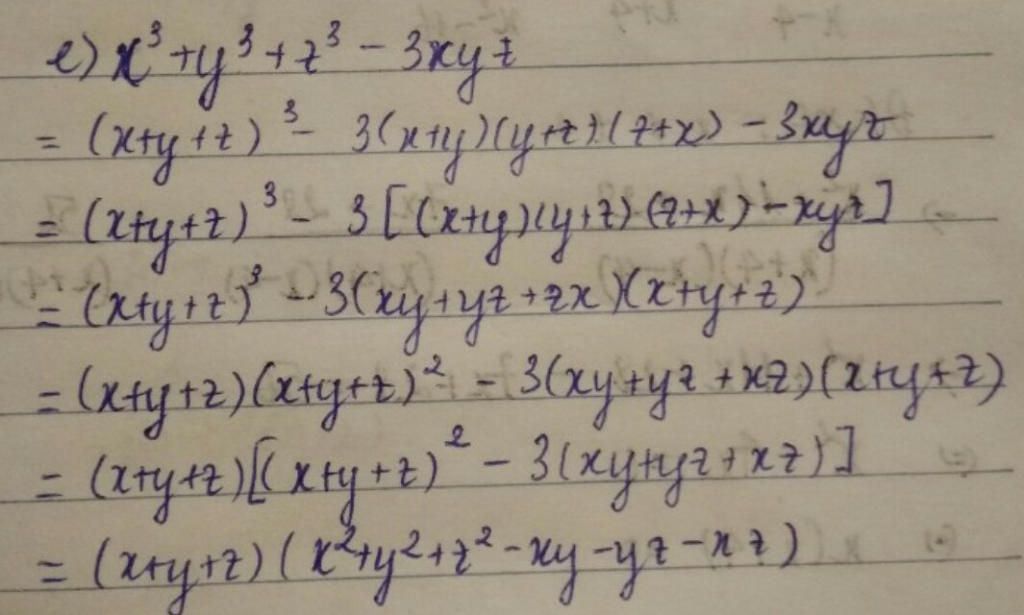 e) x³ + y³ + z³ - 3xyz
= (x+y+z)³ - 3(x+y)(y+z)(z+x) - 3xyz
= (x+y+z)³ - 3[(x+y)(y+z)(z+x) + xyz]
= (x+y+z)³ - 3(xy+yz+zx)(x+y+z)
= (x+y+z)(x+y+z)² - 3(xy+yz+xz)(x+y+z)
= (x+y+z)[(x+y+z)² - 3(xy+yz+xz)]
= (x+y+z)(x²+y²+z²-xy-yz-xz)